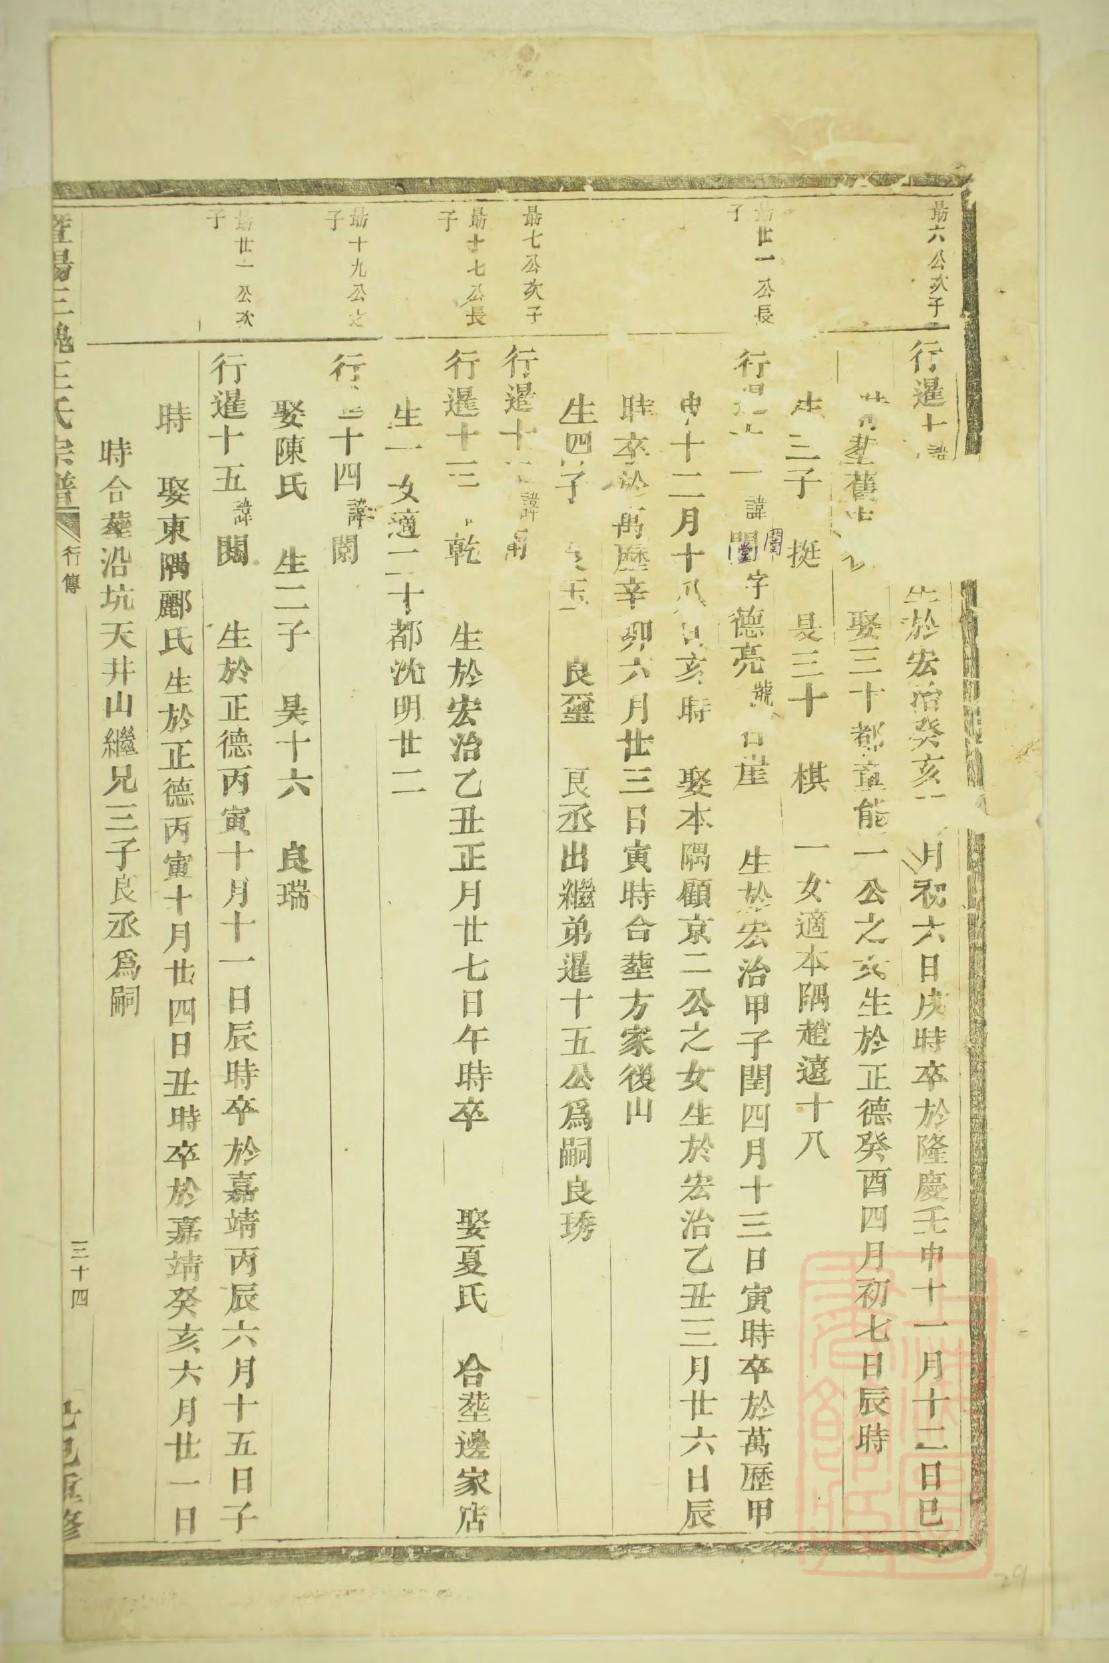 最六公次子
行暹十 諱
生於宏治癸亥 月初六日戌時卒於隆慶壬申十一月十二日巳
葬舊 娶三十都章能一公之女生於正德癸酉四月初七日辰時
生三子 挺 晏三十 棋 一女適本隅趙遠十八
最廿一公長子
行 一諱 字德亮號 崖 生於宏治甲子閏四月十三日寅時卒於萬歷甲
申十二月十八日亥時 娶本隅顧京二公之女生於宏治乙丑三月廿六日辰
時卒於萬歷辛卯六月廿三日寅時合塟方家後山
生四子 良玉 良璽 良丞出繼弟暹十五公爲嗣良琇
最七公次子
行暹十 諱
最十七公長子
行暹十三 乾 生於宏治乙丑正月廿七日午時卒 娶夏氏 合塟邊家店
生一女適二十都沈明廿二
最十九公之子
行 十四諱
娶陳氏 生二子 昊十六 良瑞
最廿一公次子
行暹十五諱闋 生於正德丙寅十月十一日辰時卒於嘉靖丙辰六月十五日子
時 娶東隅酈氏生於正德丙寅十月廿四日丑時卒於嘉靖癸亥六月廿一日
時合塟沿坑天井山繼兄三子良丞爲嗣
暨陽三槐王氏宗譜 行傳 三十四 己巳重修
29